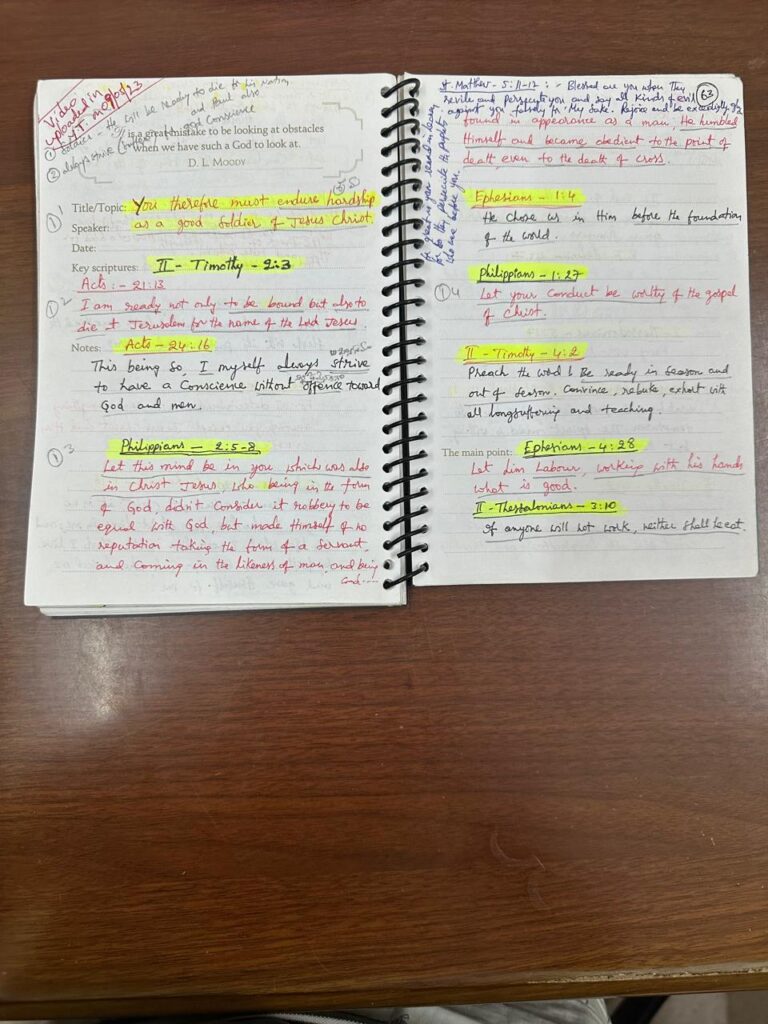 Video
uploaded in
Y.T. on 09/05/23
① Soldier - He will be ready to die for his Nation
and Paul also
② always strive good Conscience
It is a great mistake to be looking at obstacles
when we have such a God to look at.
D. L. Moody
① 1
Title/Topic: You therefore must endure hardship
Speaker: as a good Soldier of Jesus Christ.
Date:
Key scriptures: II - Timothy - 2:3
Acts :- 21:13
① 2
I am ready not only to be bound but also to
die at Jerusalem for the name of the Lord Jesus.
Notes: Acts - 24:16
This being so, I myself always strive
to have a Conscience without offence toward
God and men.
① 3
Philippians - 2:5-8
Let this mind be in you which was also
in Christ Jesus, who being in the form
of God, didn't Consider it robbery to be
equal with God, but made Himself of no
reputation taking the form of a Servant,
and Coming in the likeness of man, and being
Cond.....
63
St. Matthew - 5:11-12 :- Blessed are you when They
revile and persecute you and say all kinds of evil
against you falsely for My Sake. Rejoice and be exceedingly glad
for great is your reward in heaven
for so they persecute the prophets
who were before you.
found in appearance as a man, He humbled
Himself and became obedient to the point of
death, even to the death of cross.
Ephesians - 1:4
He chose us in Him before the foundation
of the world.
Philippians - 1:27
① 4
Let your Conduct be worthy of the gospel
of Christ.
II - Timothy - 4:2
Preach the word! Be ready in Season and
out of Season. Convince, rebuke, exhort with
all longsuffering and teaching.
The main point: Ephesians - 4:28
Let him Labour, working with his hands
what is good.
II - Thessalonians - 3:10
If anyone will not work, neither shall he eat.